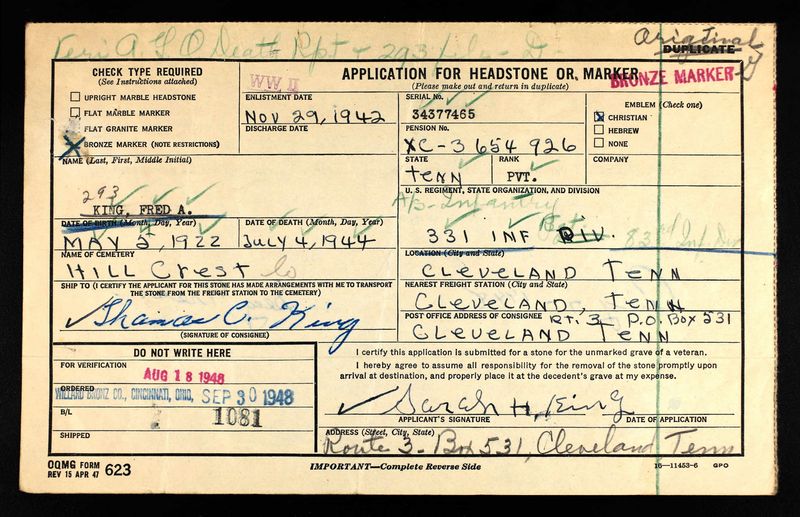 Veri A.G.O Death Rpt + 293
Original
DUPLICATE
CHECK TYPE REQUIRED
(See Instructions attached)
UPRIGHT MARBLE HEADSTONE
FLAT MARBLE MARKER
FLAT GRANITE MARKER
X BRONZE MARKER (NOTE RESTRICTIONS)
WW II
APPLICATION FOR HEADSTONE OR MARKER
BRONZE MARKER
(Please make out and return in duplicate)
ENLISTMENT DATE
NOV 29, 1942
DISCHARGE DATE
SERIAL No.
34377465
PENSION No.
XC-3 654 926
EMBLEM (Check one)
X CHRISTIAN
HEBREW
NONE
STATE
TENN
RANK
PVT.
COMPANY
NAME (Last, First, Middle Initial)
293
KING, FRED A.
U. S. REGIMENT, STATE ORGANIZATION, AND DIVISION
Infantry
331 INF DIV. 83rd Inf Div
DATE OF BIRTH (Month, Day, Year)
MAY 2, 1922
DATE OF DEATH (Month, Day, Year)
July 4, 1944
NAME OF CEMETERY
HILL Crest
LOCATION (City and State)
CLEVELAND TENN
SHIP TO (I CERTIFY THE APPLICANT FOR THIS STONE HAS MADE ARRANGEMENTS WITH ME TO TRANSPORT
THE STONE FROM THE FREIGHT STATION TO THE CEMETERY)
C. King
(SIGNATURE OF CONSIGNEE)
NEAREST FREIGHT STATION (City and State)
CLEVELAND, TENN
POST OFFICE ADDRESS OF CONSIGNEE Rt. 3 P.O. Box 531
CLEVELAND TENN
DO NOT WRITE HERE
FOR VERIFICATION
AUG 18 1948
ORDERED
WILLARD BRONZ CO., CINCINNATI, OHIO, SEP 30 1948
B/L
1081
SHIPPED
I certify this application is submitted for a stone for the unmarked grave of a veteran.
I hereby agree to assume all responsibility for the removal of the stone promptly upon
arrival at destination, and properly place it at the decedent's grave at my expense.
Sarah H. King
APPLICANT'S SIGNATURE DATE OF APPLICATION
ADDRESS (Street, City, State)
Route 3- Box 531, Cleveland Tenn
OQMG FORM
REV 15 APR 47 623
IMPORTANT—Complete Reverse Side
16—11453-6 GPO